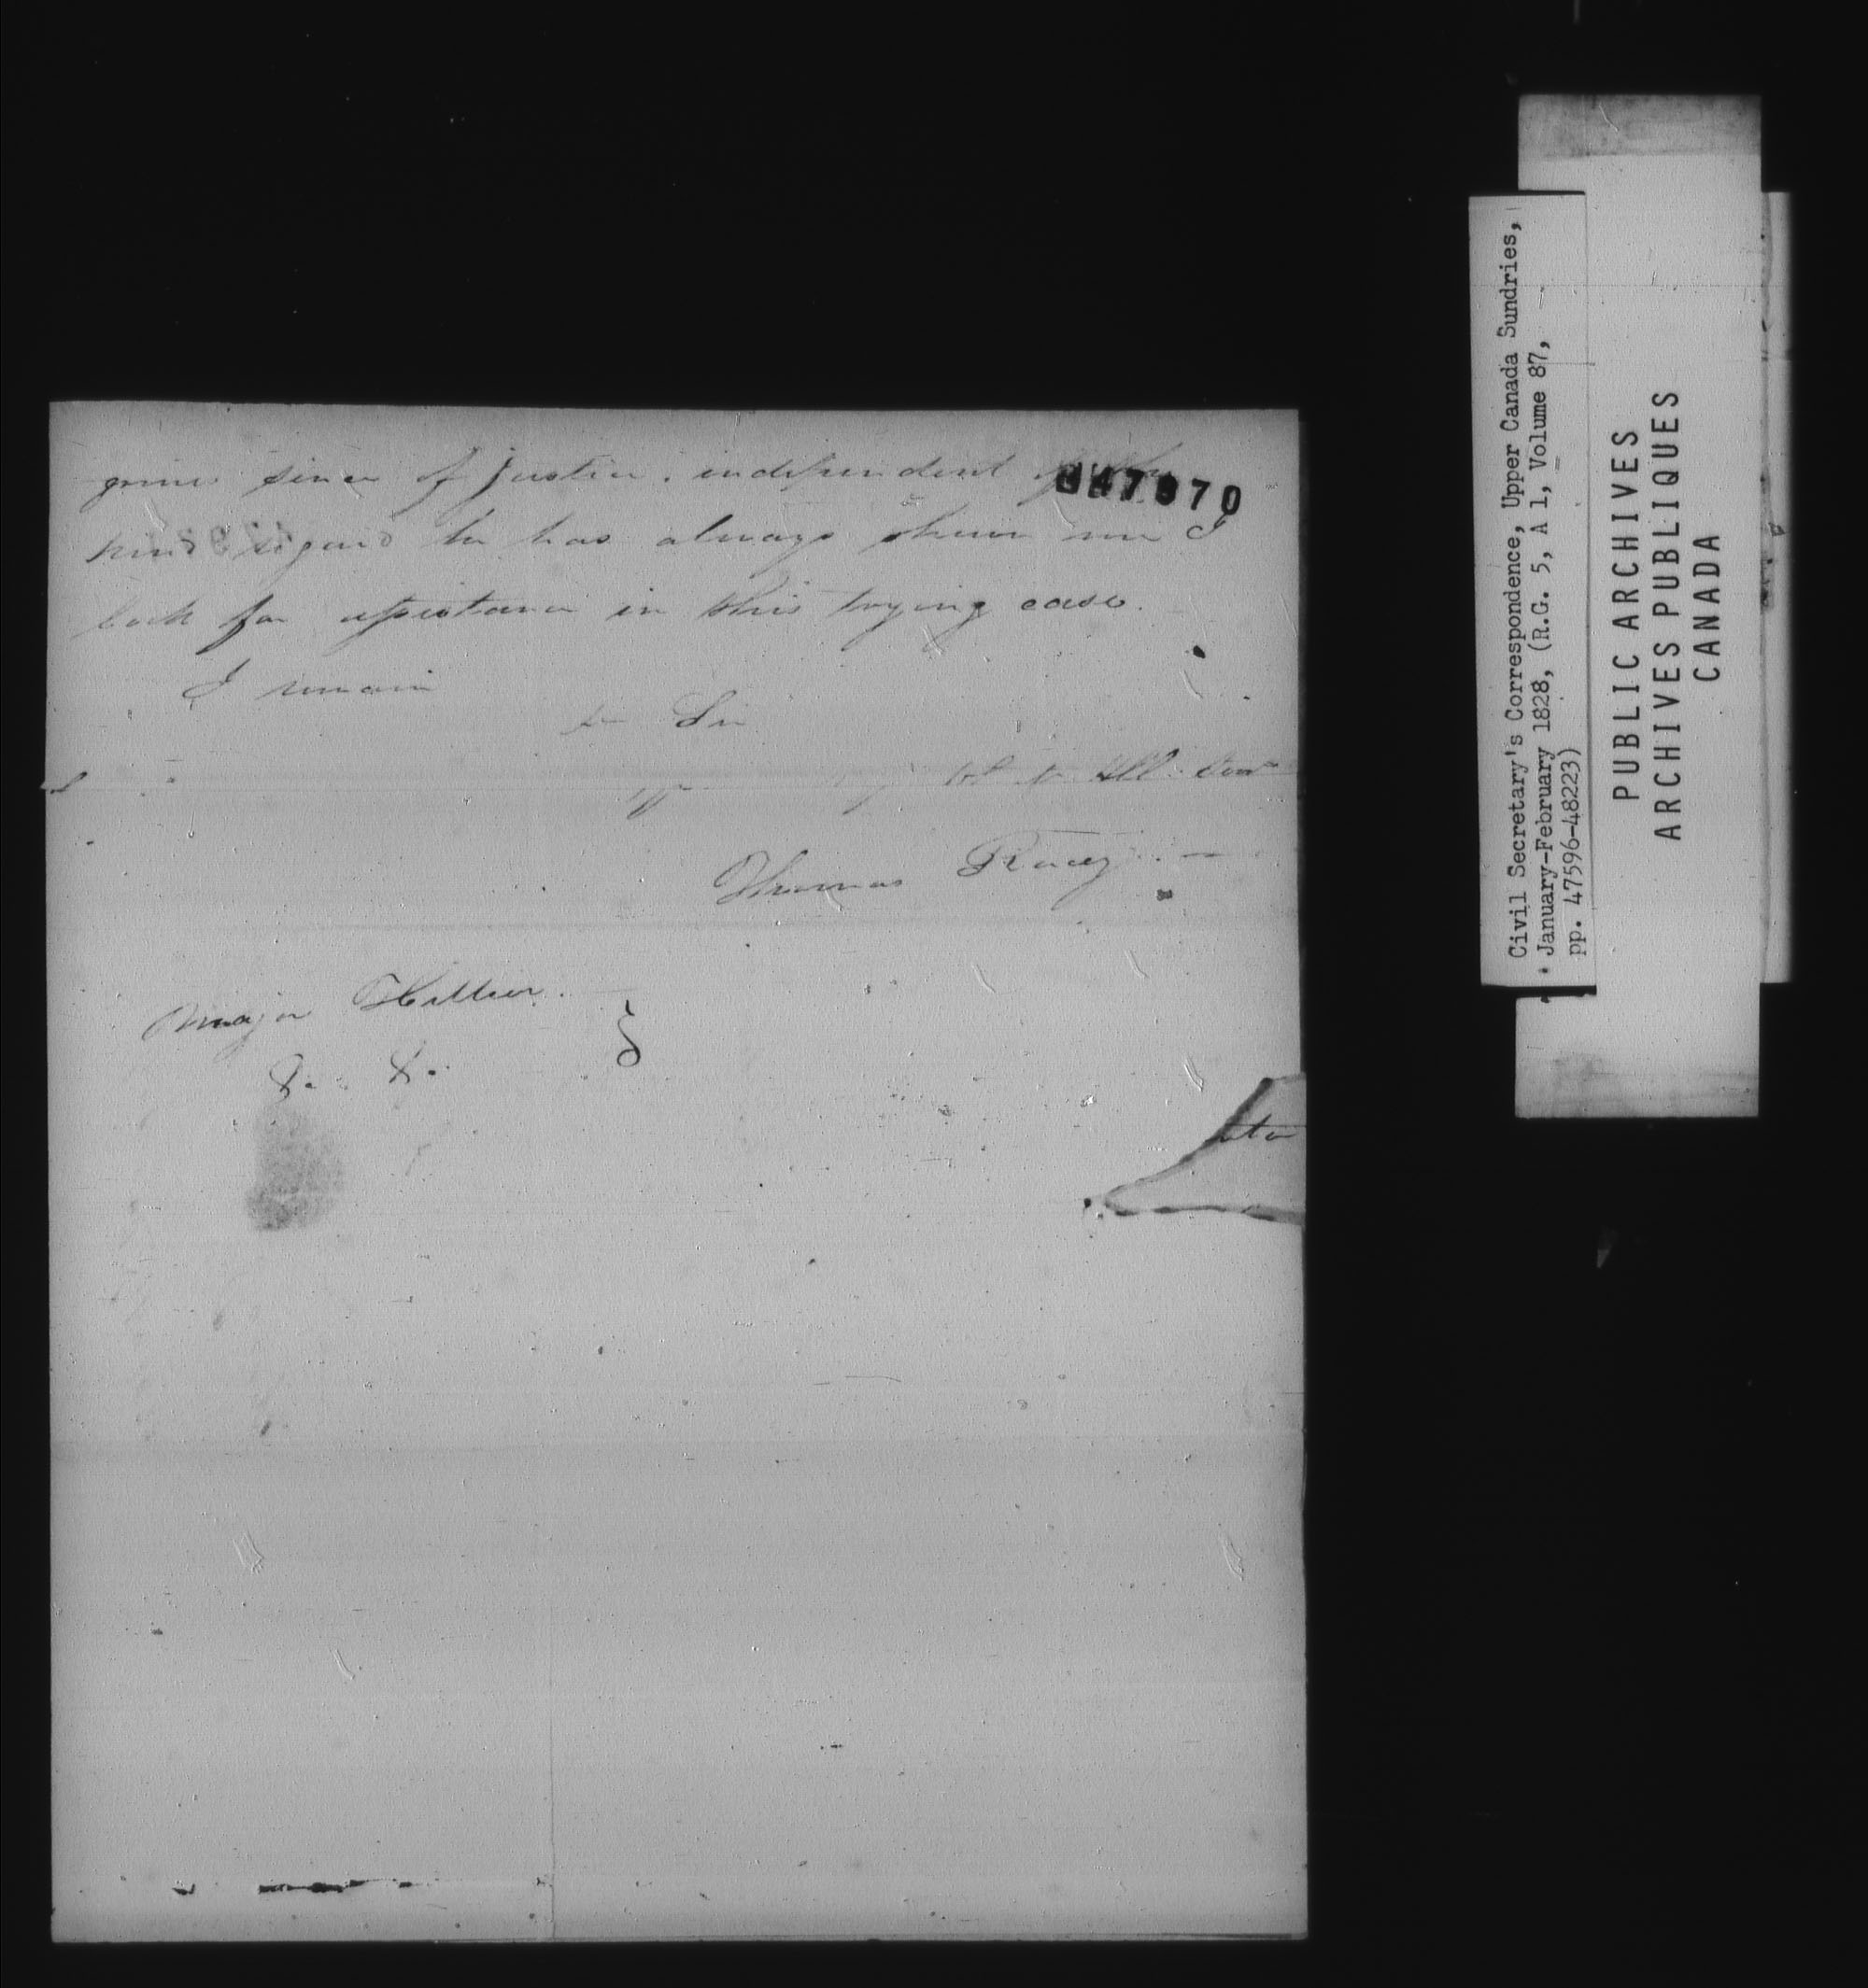 sence of justice. independent of
kind regard he has always shewn me I
look for assistance in this trying case.
I remain
Sir
Thomas Racey
Major Hillier.
&. &.
Civil Secretary's Correspondence, Upper Canada Sundries,
January-February 1828, (R.G. 5, A 1, Volume 87,
pp. 47596-48223)
PUBLIC ARCHIVES
ARCHIVES PUBLIQUES
CANADA